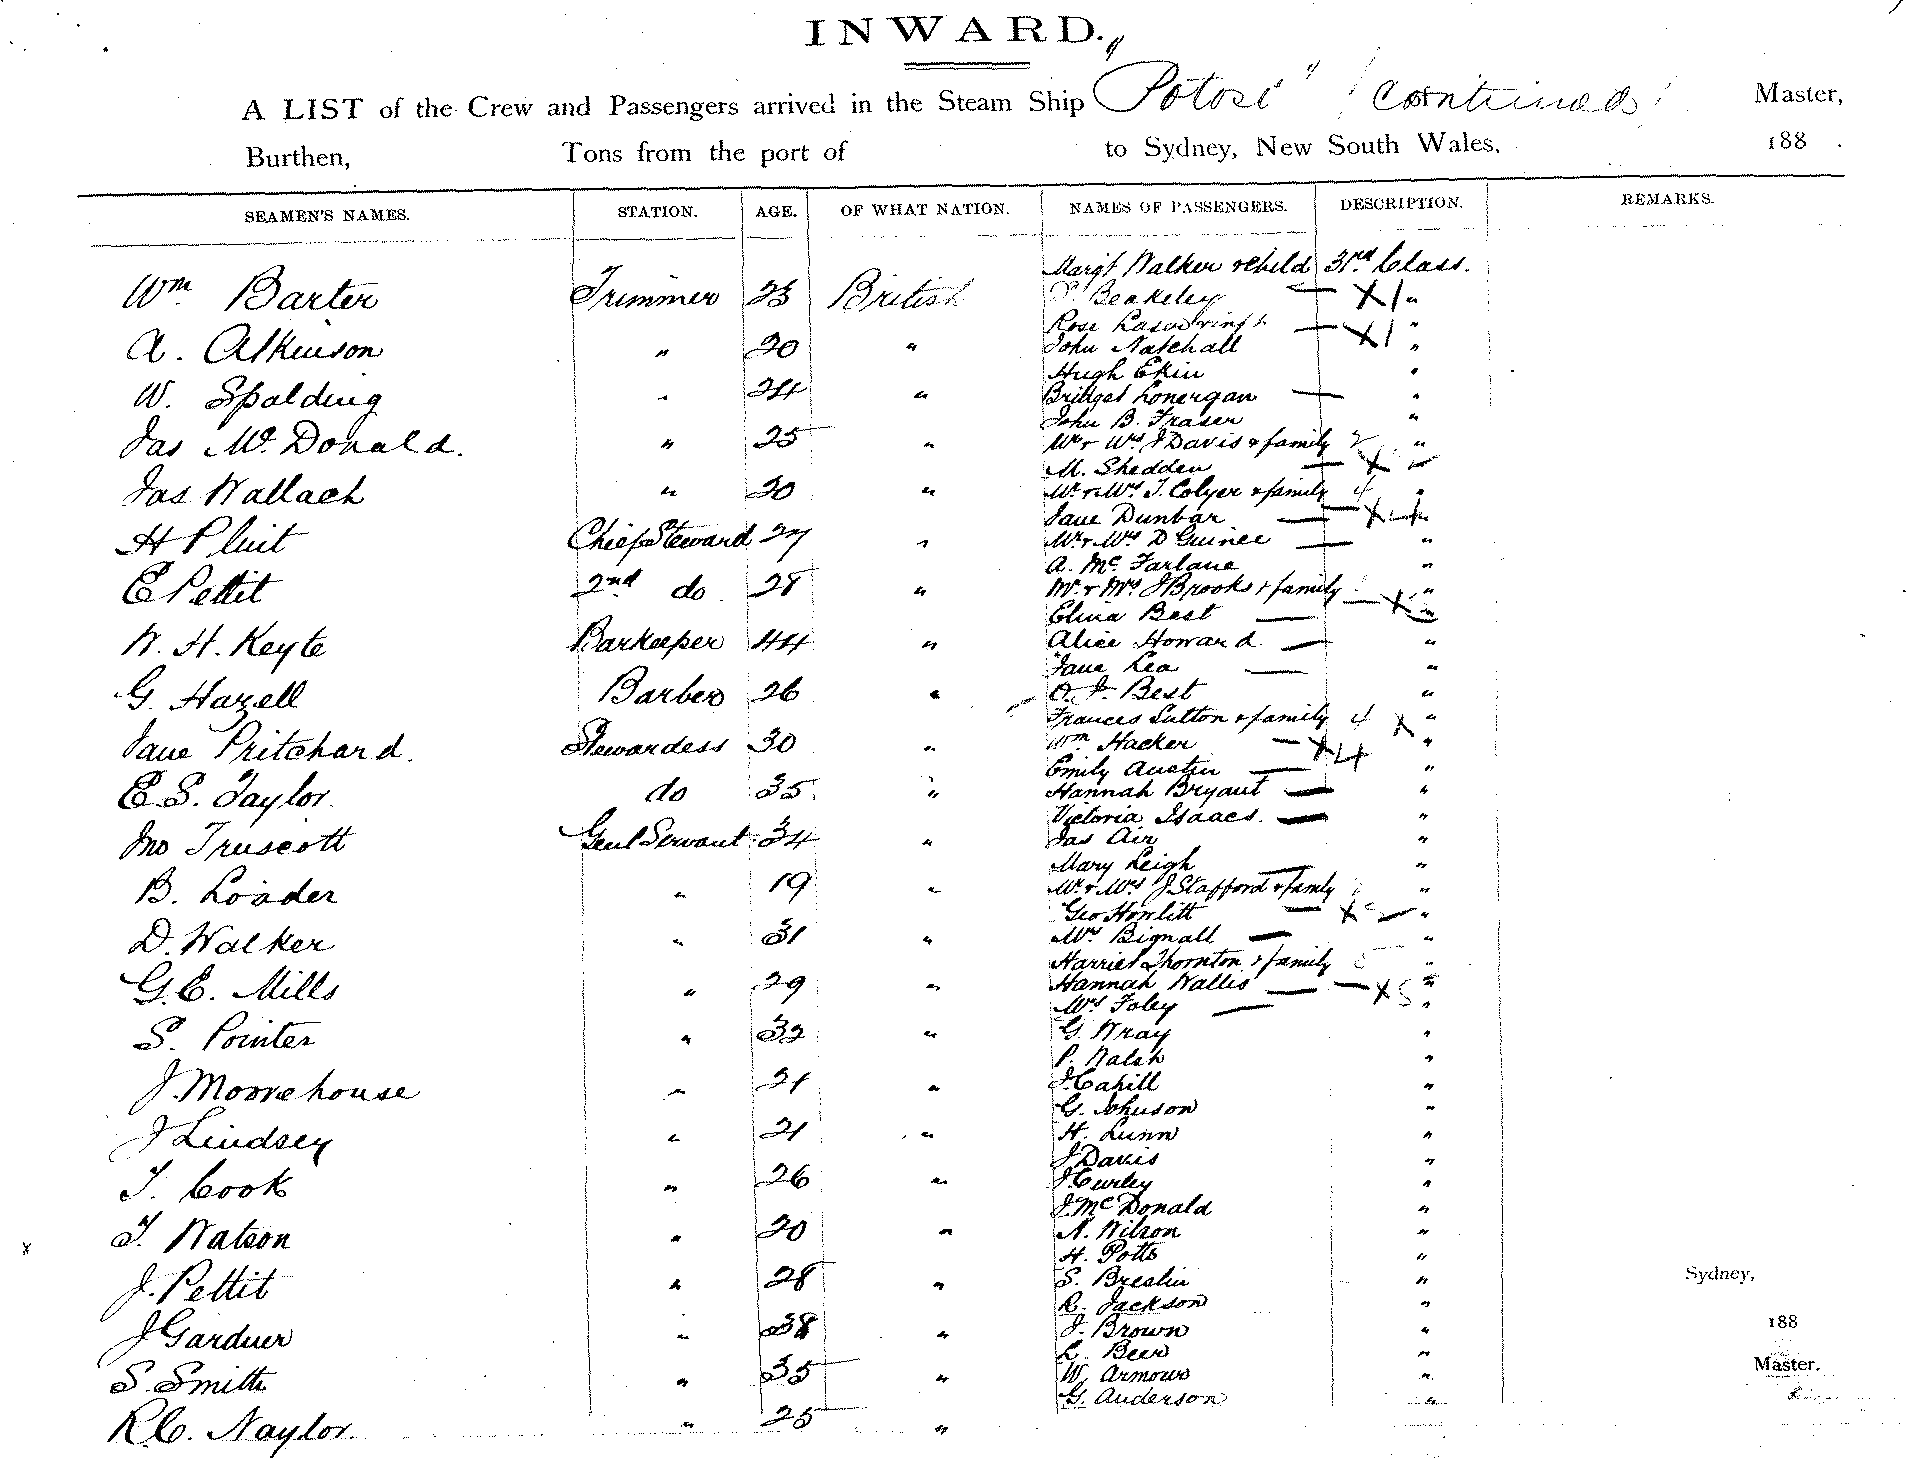 INWARD.
A LIST of the Crew and Passengers arrived in the Steam Ship "Potosi" (Continued) Master,
Burthen, Tons from the port of to Sydney, New South Wales, 188 .
SEAMEN'S NAMES. STATION. AGE. OF WHAT NATION. NAMES OF PASSENGERS. DESCRIPTION. REMARKS.
Margt Walker & child 3rd Class.
Wm Barter Trimmer 23 British Beakeley — X 1 "
Rose — X 1 "
A. Atkinson " 20 " John Natchall "
Hugh Ekin "
W. Spalding " 24 " Bridget Lonergan — "
John B. Fraser "
Jas Mc Donald. " 25 " Mr & Mrs J Davis & family 2 "
M. Shedden — X "
Jas Wallach " 20 " Mr & Mrs T. Colyer & family 4 "
Jane Dunbar — X 4 "
H Pluit Chief Steward 27 " Mr & Mrs D Guinee — "
A. Mc Farlane "
E Pettit 2nd do 28 " Mr & Mrs J Brooks & family "
Eliza Best — X "
W. H. Keyte Barkeeper 44 " Alice Howard — "
Jane Lea — "
G. Hazell Barber 26 " O. J. Best "
Frances Sutton & family 4 X "
Jane Pritchard. Stewardess 30 " Wm Hacker — X 4 "
Emily Austin — "
E. S. Taylor. do 35 " Hannah Bryant — "
Victoria Isaacs. — "
Jno Truscott Genl Servant 34 " Jas Air "
Mary Leigh — "
B. Loader " 19 " Mr & Mrs J Stafford & family "
Geo Howlitt — X "
D. Walker " 31 " Mrs Bignall — "
Harriet Thornton & family 5 "
G. E. Mills " 29 " Hannah Wallis — X 5 "
Mrs Foley — "
S. Pointer " 32 " G. Wray "
P. Walsh "
J. Moorehouse " 21 " J. Cahill "
G. Johnson "
J Lindsey " 21 " H. Lunn "
J Davis "
T. Cook " 26 " J. Curley "
J. Mc Donald "
T. Watson " 20 " N. Wilson "
H. Potts "
J. Pettit " 28 " S. Breslin " Sydney,
R. Jackson "
J Gardner " 38 " J. Brown " 188
L. Beer "
S. Smith " 35 " W. Armour " Master.
G. Anderson "
R. C. Naylor. " 25 "